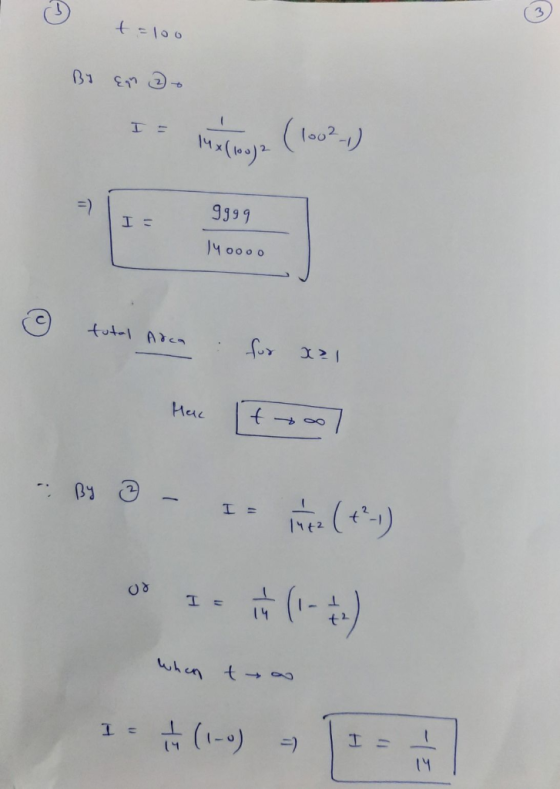 ① ③
t = 100
By Eqn ② →
I = 1/(14×(100)²) (100² -1)
=) I = 9999/140000
ⓒ total Area : for x ≥ 1
Here t → ∞
∴ By ② — I = 1/(14t²) (t² -1)
or I = 1/14 (1 - 1/t²)
When t → ∞
I = 1/14 (1-0) =) I = 1/14